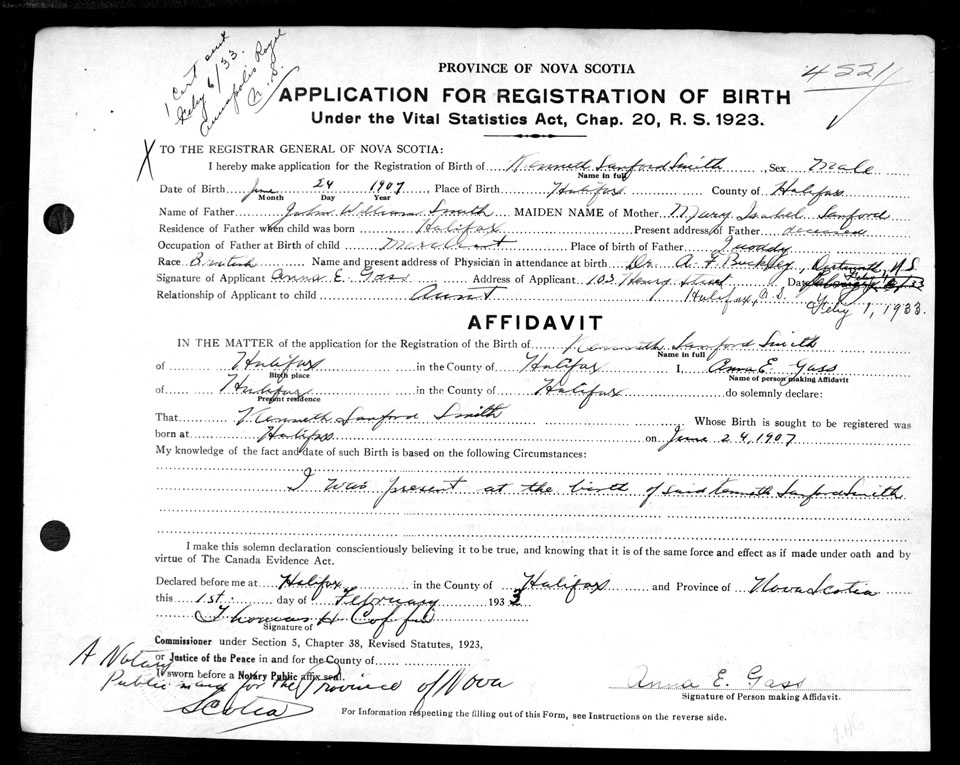 1 Cert sent
Feby 6/33.
Annapolis Royal
N.S.
45211
PROVINCE OF NOVA SCOTIA
APPLICATION FOR REGISTRATION OF BIRTH
Under the Vital Statistics Act, Chap. 20, R. S. 1923.
X TO THE REGISTRAR GENERAL OF NOVA SCOTIA:
I hereby make application for the Registration of Birth of Kenneth Sanford Smith, Sex Male
Name in full
Date of Birth June 24 1907, Place of Birth Halifax County of Halifax
Month Day Year
Name of Father John William Smith MAIDEN NAME of Mother Mary Isabel Sanford
Residence of Father when child was born Halifax Present address of Father deceased
Occupation of Father at Birth of child Merchant Place of birth of Father Quoddy
Race British Name and present address of Physician in attendance at birth Dr. A. F. Buckley, Dartmouth, N.S.
Signature of Applicant Anna E. Gass Address of Applicant 103 Henry Street Date
Relationship of Applicant to child Aunt Halifax, N.S. Feby 1, 1933.
AFFIDAVIT
IN THE MATTER of the application for the Registration of the Birth of Kenneth Sanford Smith
Name in full
of Halifax in the County of Halifax I, Anna E. Gass
Birth place Name of person making Affidavit
of Halifax in the County of Halifax do solemnly declare:
Present residence
That Kenneth Sanford Smith Whose Birth is sought to be registered was
born at Halifax on June 24, 1907
My knowledge of the fact and date of such Birth is based on the following Circumstances:
I was present at the birth of said Kenneth Sanford Smith
I make this solemn declaration conscientiously believing it to be true, and knowing that it is of the same force and effect as if made under oath and by
virtue of The Canada Evidence Act.
Declared before me at Halifax in the County of Halifax and Province of Nova Scotia
this 1st. day of February 1933
Thomas H. Coffin
Signature of
Commissioner under Section 5, Chapter 38, Revised Statutes, 1923,
or Justice of the Peace in and for the County of
If sworn before a Notary Public affix seal.
A Notary
Public in and for the Province of Nova
Scotia
Anna E. Gass
Signature of Person making Affidavit.
For Information respecting the filling out of this Form, see Instructions on the reverse side.